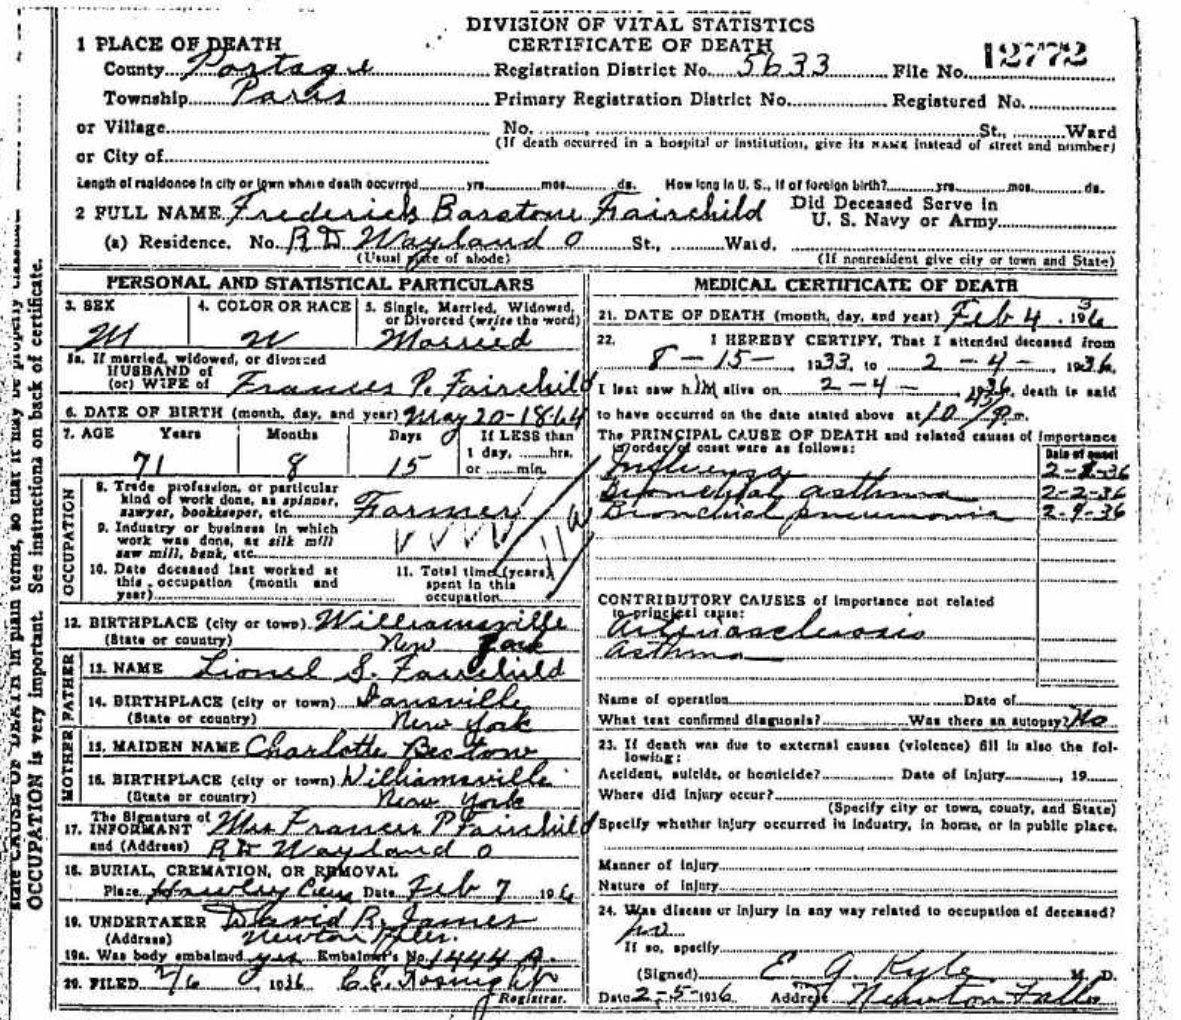 DIVISION OF VITAL STATISTICS
CERTIFICATE OF DEATH
1 PLACE OF DEATH
County Portage Registration District No. 5633 File No. 12772
Township Paris Primary Registration District No. Registered No.
or Village No. St., Ward
(If death occurred in a hospital or institution, give its NAME instead of street and number)
or City of
Length of residence in city or town where death occurred yrs. mos. ds. How long in U. S., if of foreign birth? yrs. mos. ds.
2 FULL NAME Frederick Fairchild Did Deceased Serve in
U. S. Navy or Army
(a) Residence. No. R D Wayland O St., Ward.
(Usual place of abode) (If nonresident give city or town and State)
PERSONAL AND STATISTICAL PARTICULARS
3. SEX M
4. COLOR OR RACE W
5. Single, Married, Widowed, or Divorced (write the word) Married
5a. If married, widowed, or divorced
HUSBAND of
(or) WIFE of Frances P. Fairchild
6. DATE OF BIRTH (month, day, and year) May 20-1864
7. AGE Years Months Days If LESS than
1 day, hrs.
or min.
71 8 15
OCCUPATION
8. Trade, profession, or particular
kind of work done, as spinner,
sawyer, bookkeeper, etc. Farmer
9. Industry or business in which
work was done, as silk mill
saw mill, bank, etc.
10. Date deceased last worked at
this occupation (month and
year)
11. Total time (years)
spent in this
occupation
12. BIRTHPLACE (city or town) Williamsville
(State or country) New York
FATHER
13. NAME Lionel S. Fairchild
14. BIRTHPLACE (city or town) Dansville
(State or country) New York
MOTHER
15. MAIDEN NAME Charlotte
16. BIRTHPLACE (city or town) Williamsville
(State or country) New York
The Signature of
17. INFORMANT Mrs Frances P Fairchild
and (Address) R D Wayland O
18. BURIAL, CREMATION, OR REMOVAL
Place Hawley Cem Date Feb 7 1936
19. UNDERTAKER David R. James
(Address) Newton Falls.
19a. Was body embalmed yes Embalmer's No. 1444 A.
20. FILED 2/6 1936 C.E.
Registrar.
MEDICAL CERTIFICATE OF DEATH
21. DATE OF DEATH (month, day, and year) Feb 4. 1936
22. I HEREBY CERTIFY, That I attended deceased from
8-15-1933, to 2-4-1936.
I last saw him alive on 2-4-1936, death is said
to have occurred on the date stated above at 10 P.m.
The PRINCIPAL CAUSE OF DEATH and related causes of importance
in order of onset were as follows:
Date of onset
Influenza
Bronchial asthma 2-2-36
Bronchial pneumonia
CONTRIBUTORY CAUSES of importance not related
to principal cause:
Arteriosclerosis
asthma
Name of operation Date of
What test confirmed diagnosis? Was there an autopsy? No
23. If death was due to external causes (violence) fill in also the fol-
lowing:
Accident, suicide, or homicide? Date of injury, 19
Where did injury occur?
(Specify city or town, county, and State)
Specify whether injury occurred in industry, in home, or in public place.
Manner of Injury
Nature of Injury
24. Was disease or injury in any way related to occupation of deceased?
no
If so, specify
(Signed) E. G. Kyle M. D.
Date 2-5-1936 Address Newton Falls
state CAUSE OF DEATH in plain terms, so that it may be properly classified.
OCCUPATION is very important. See instructions on back of certificate.